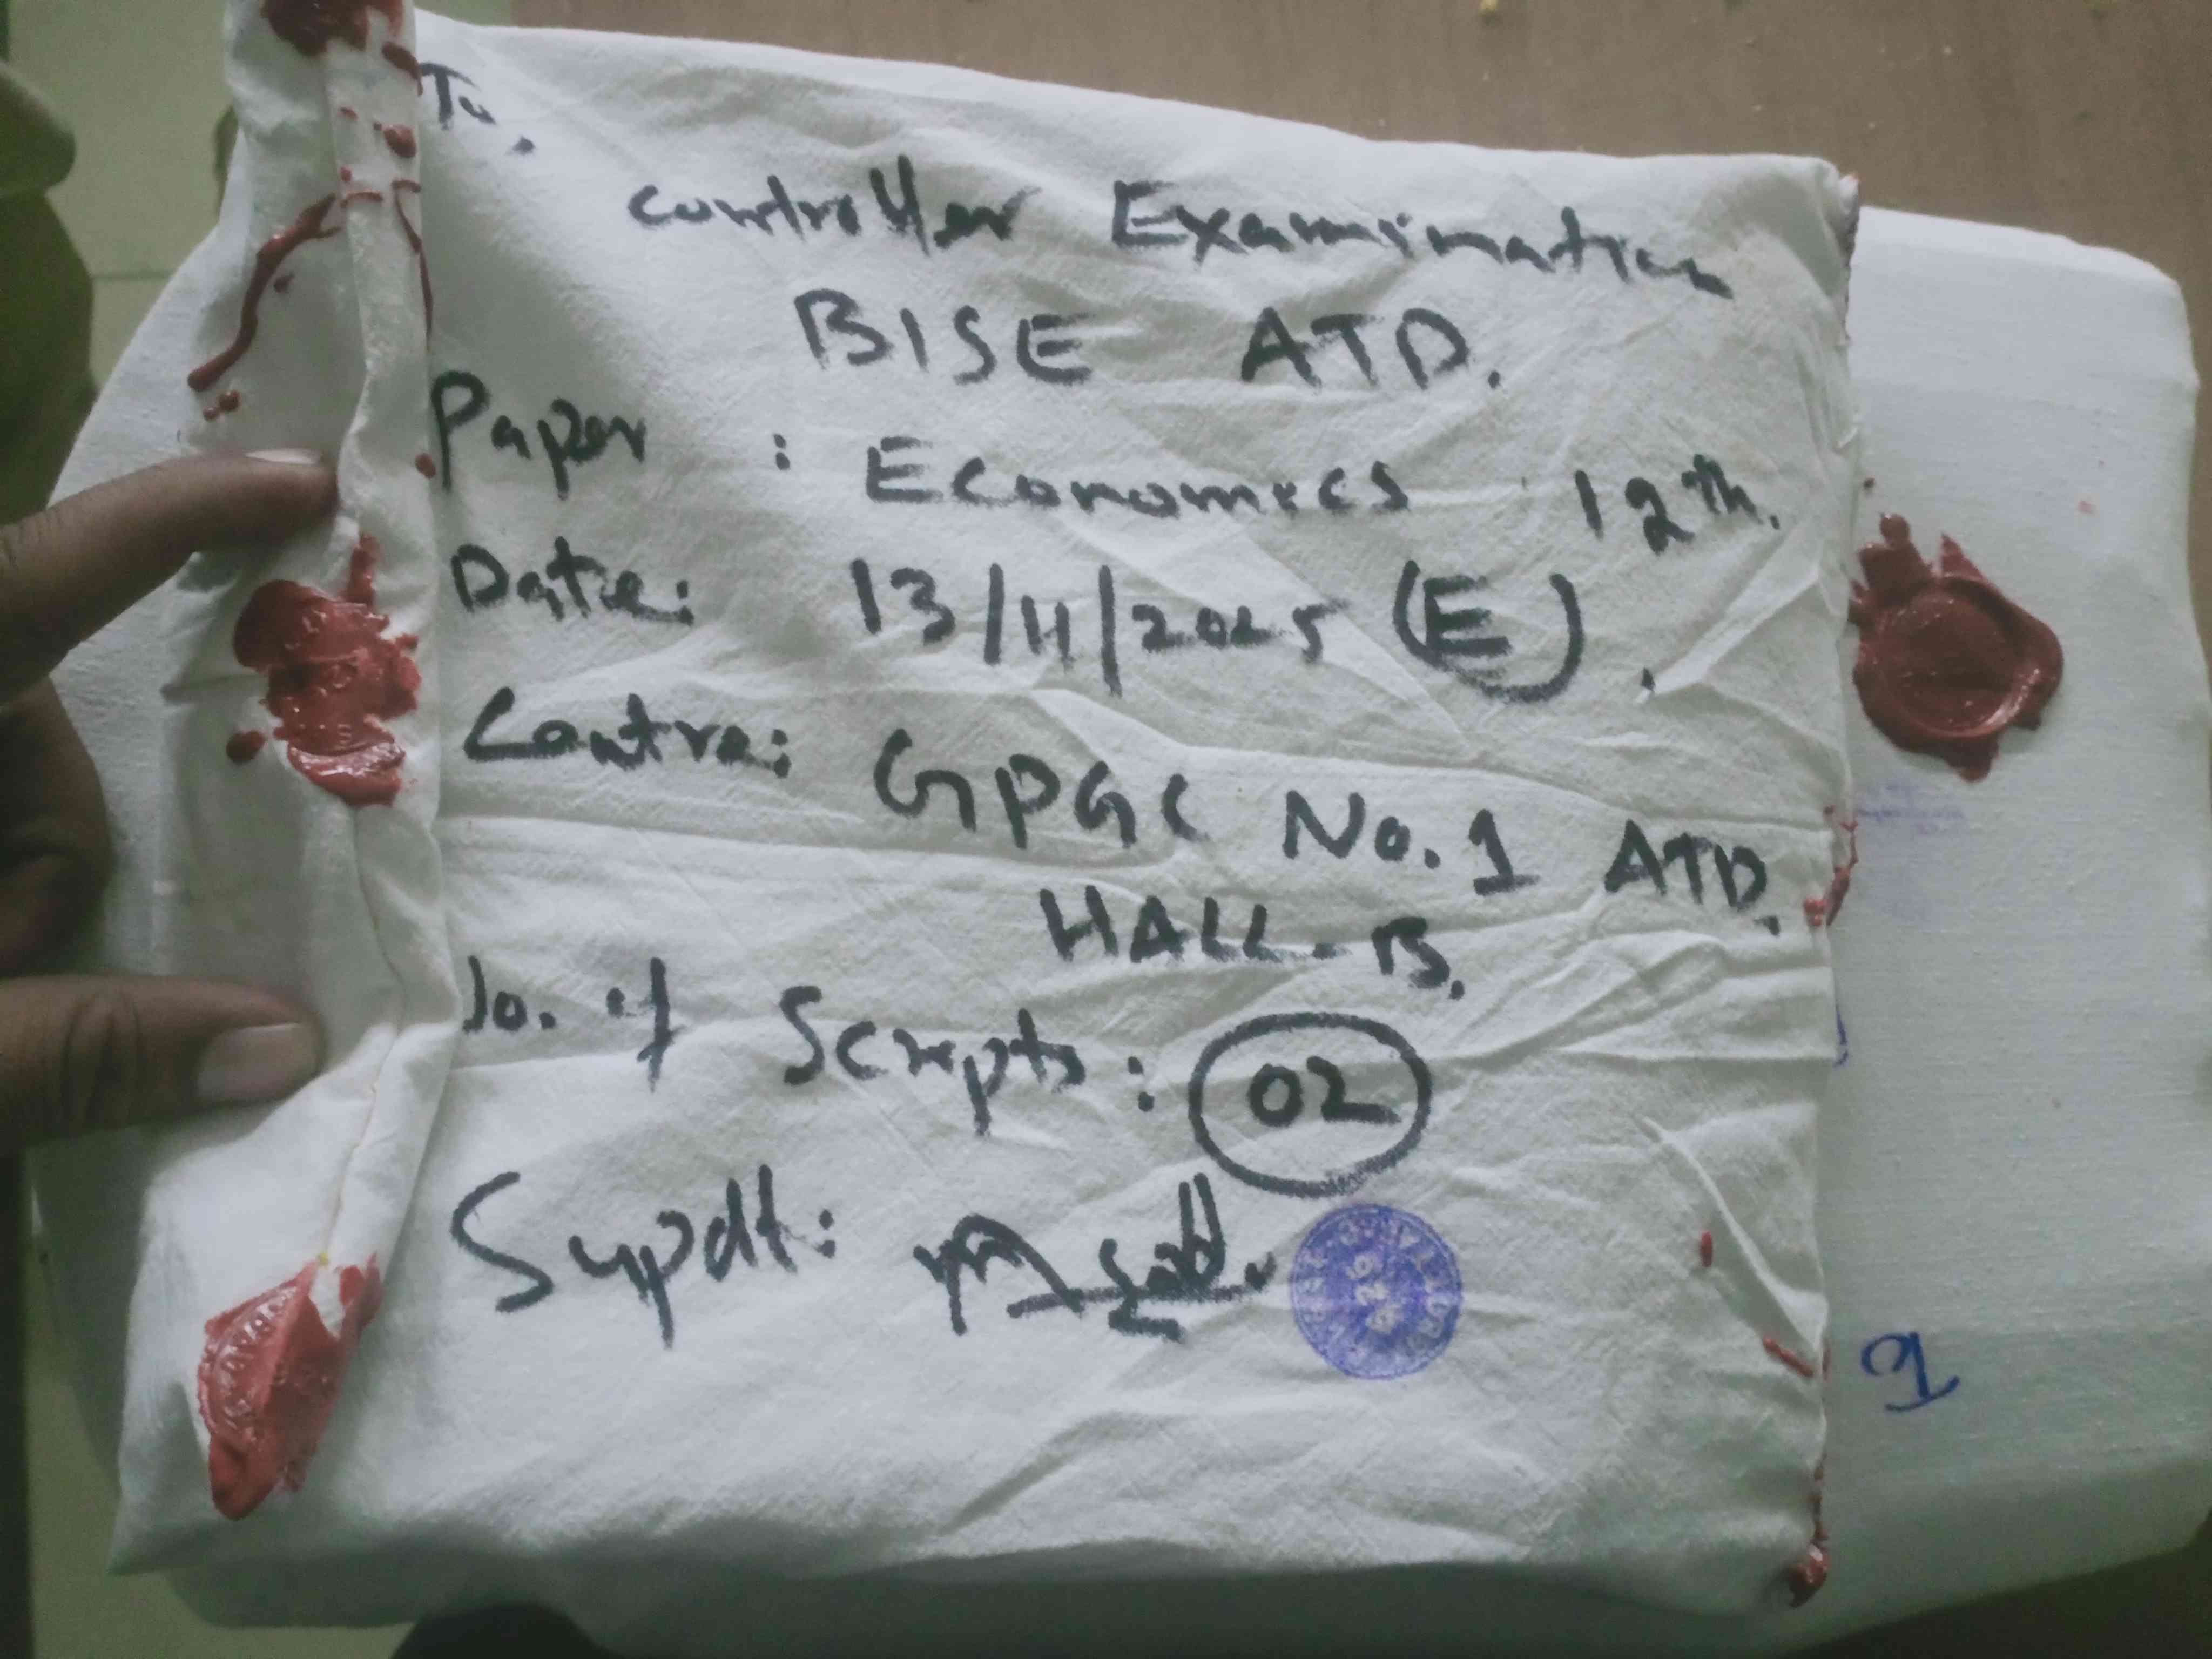 To,
Controller Examination
BISE ATD.
Paper : Economics 12th.
Date: 13/11/2025 (E).
Centre: GPGC No. 1 ATD.
HALL-B.
No. of Scripts: 02
Supdt:
1